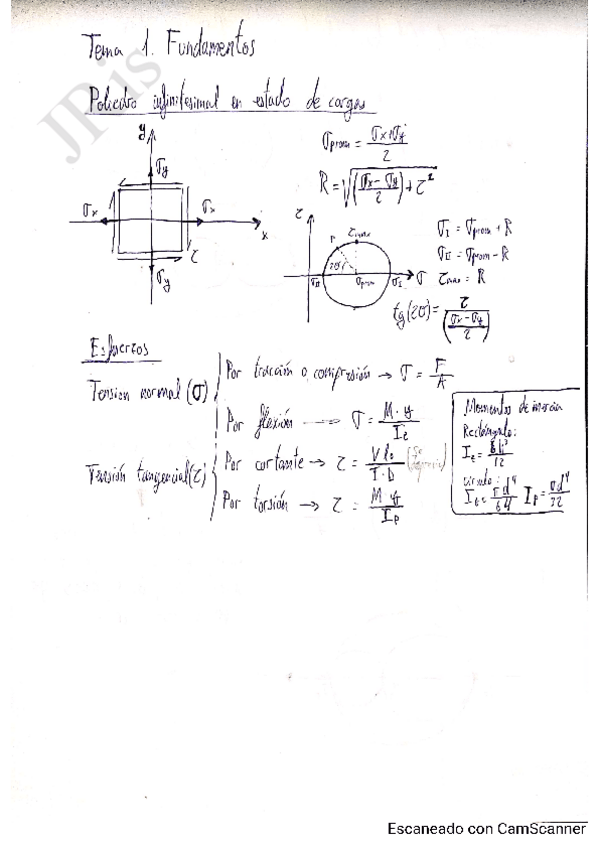 Tema 1. Fundamentos
JRis
Poliedro infinitesimal en estado de cargas
y
σy
σx
σx
x
τ
σy
σprom = σx+σy / 2
R = √((σx - σy / 2) + τ²
τ
τmax
P
2σ
σII
σprom
σI
σ
σI = σprom + R
σII = σprom - R
τmax = R
tg(2σ) = τ / (σx - σy / 2)
Esfuerzos
Tension normal (σ)
Por tracción o compresión → σ = F / A
Por flexión → σ = M · y / Iz
Tensión tangencial (τ)
Por cortante → τ = V / I · b
Por torsión → τ = M y / Ip
Momentos de inercia
Rectángulo:
Iz = bh³ / 12
círculo:
Iz = πd⁴ / 64 Ip = πd⁴ / 32
Escaneado con CamScanner